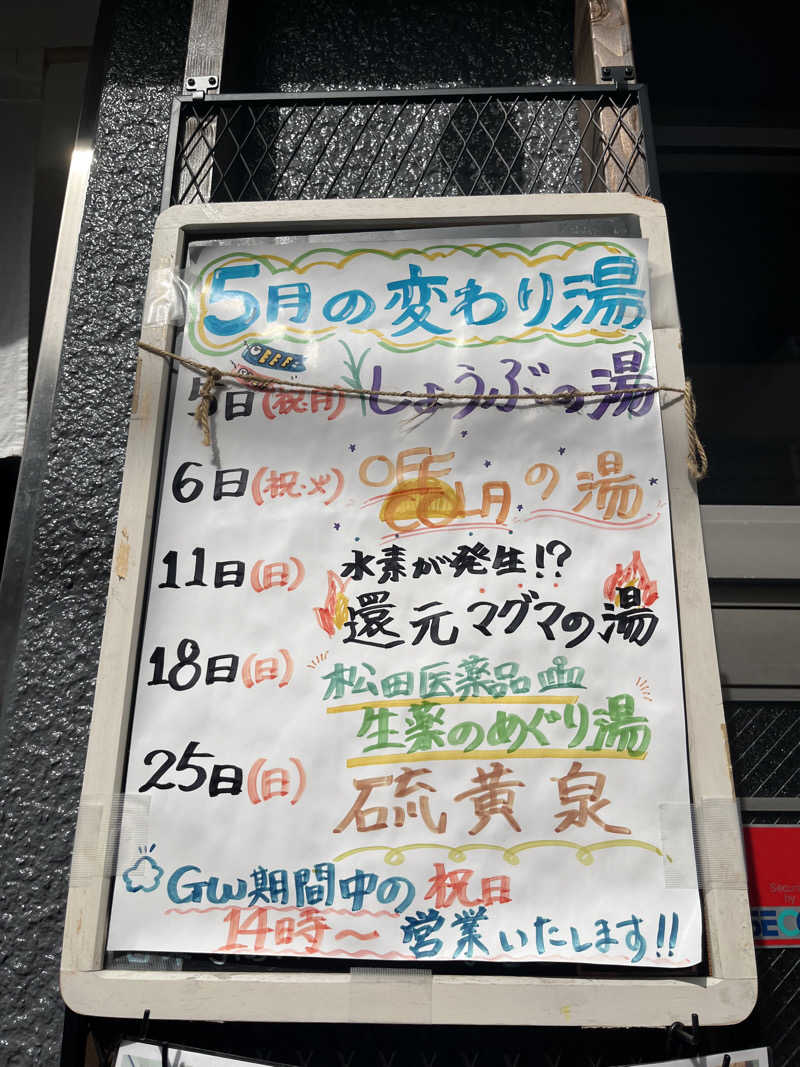 5月の変わり湯
5日(祝・月) しょうぶの湯
6日(祝・火) OFF COLAの湯
11日(日) 水素が発生!?
還元マグマの湯
18日(日) 松田医薬品
生薬のめぐり湯
25日(日) 硫黄泉
GW期間中の祝日
14時〜営業いたします!!
Secom
by
SECO